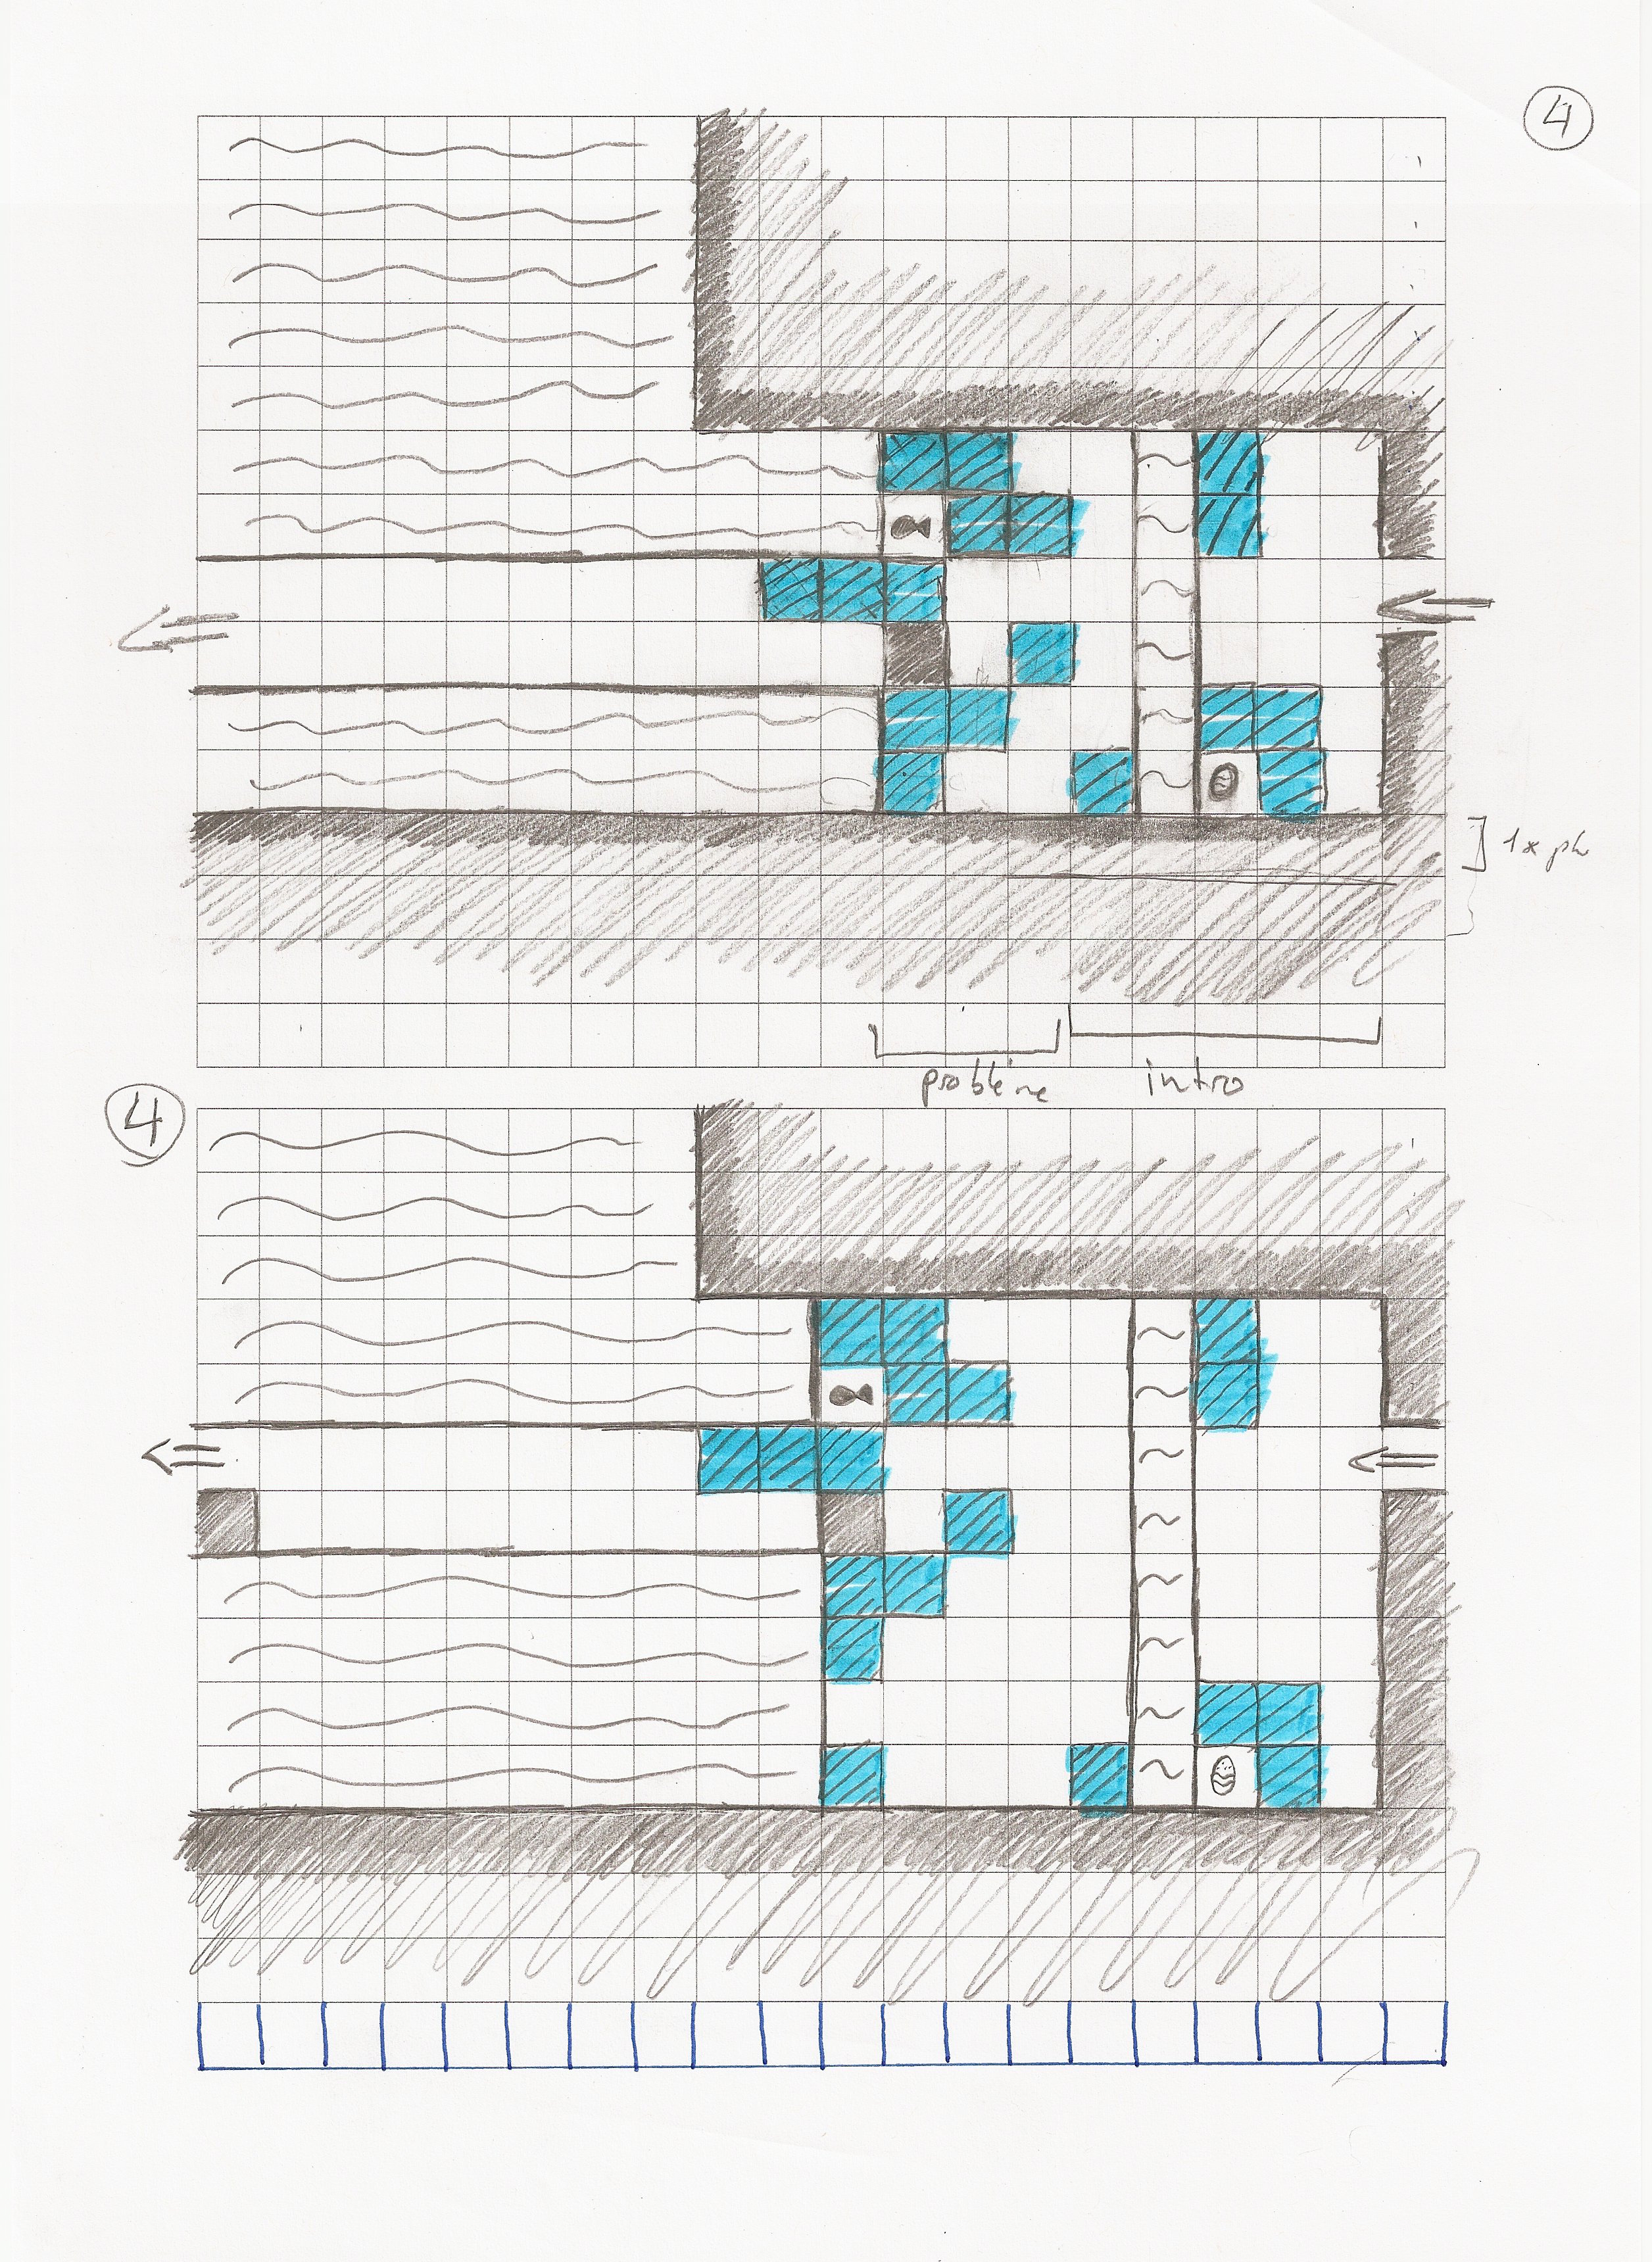 4
1x ph
problème intro
4